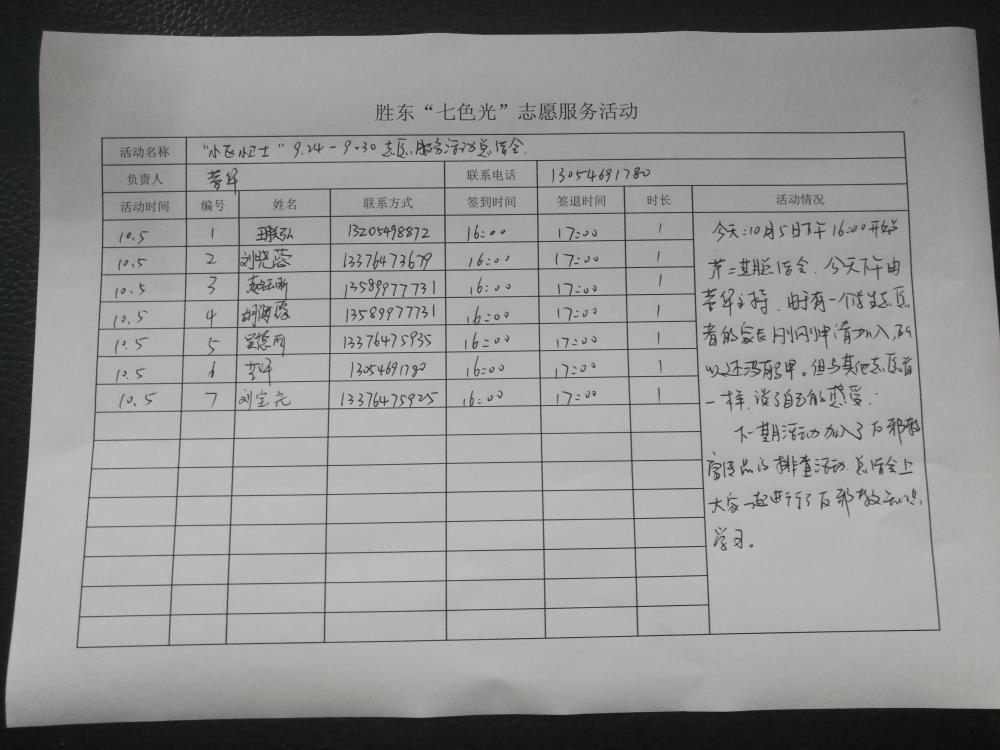 胜东“七色光”志愿服务活动
活动名称 “小小卫士” 9.24-9.30志愿服务活动总结会.
负责人 联系电话 13054691780
活动时间 编号 姓名 联系方式 签到时间 签退时间 时长 活动情况
10.5 1 13205498872 16:00 17:00 1
10.5 2 刘晓蓉 13376473679 16:00 17:00 1
10.5 3 13589977731 16:00 17:00 1
10.5 4 胡海霞 13589977731 16:00 17:00 1
10.5 5 13376475935 16:00 17:00 1
10.5 6 13054691780 16:00 17:00 1
10.5 7 刘宝元 13376475925 16:00 17:00 1
今天:10月5日下午16:00开始
第二期总结会.今天下午由
主持.由于有一个学生志愿
者的家长刚刚申请加入,所
以还没有马甲。但与其他志愿者
一样,谈了自己的感受.
下一期活动加入了反邪教
宣传品的排查活动.总结会上
大家一起进行了反邪教知识
学习。